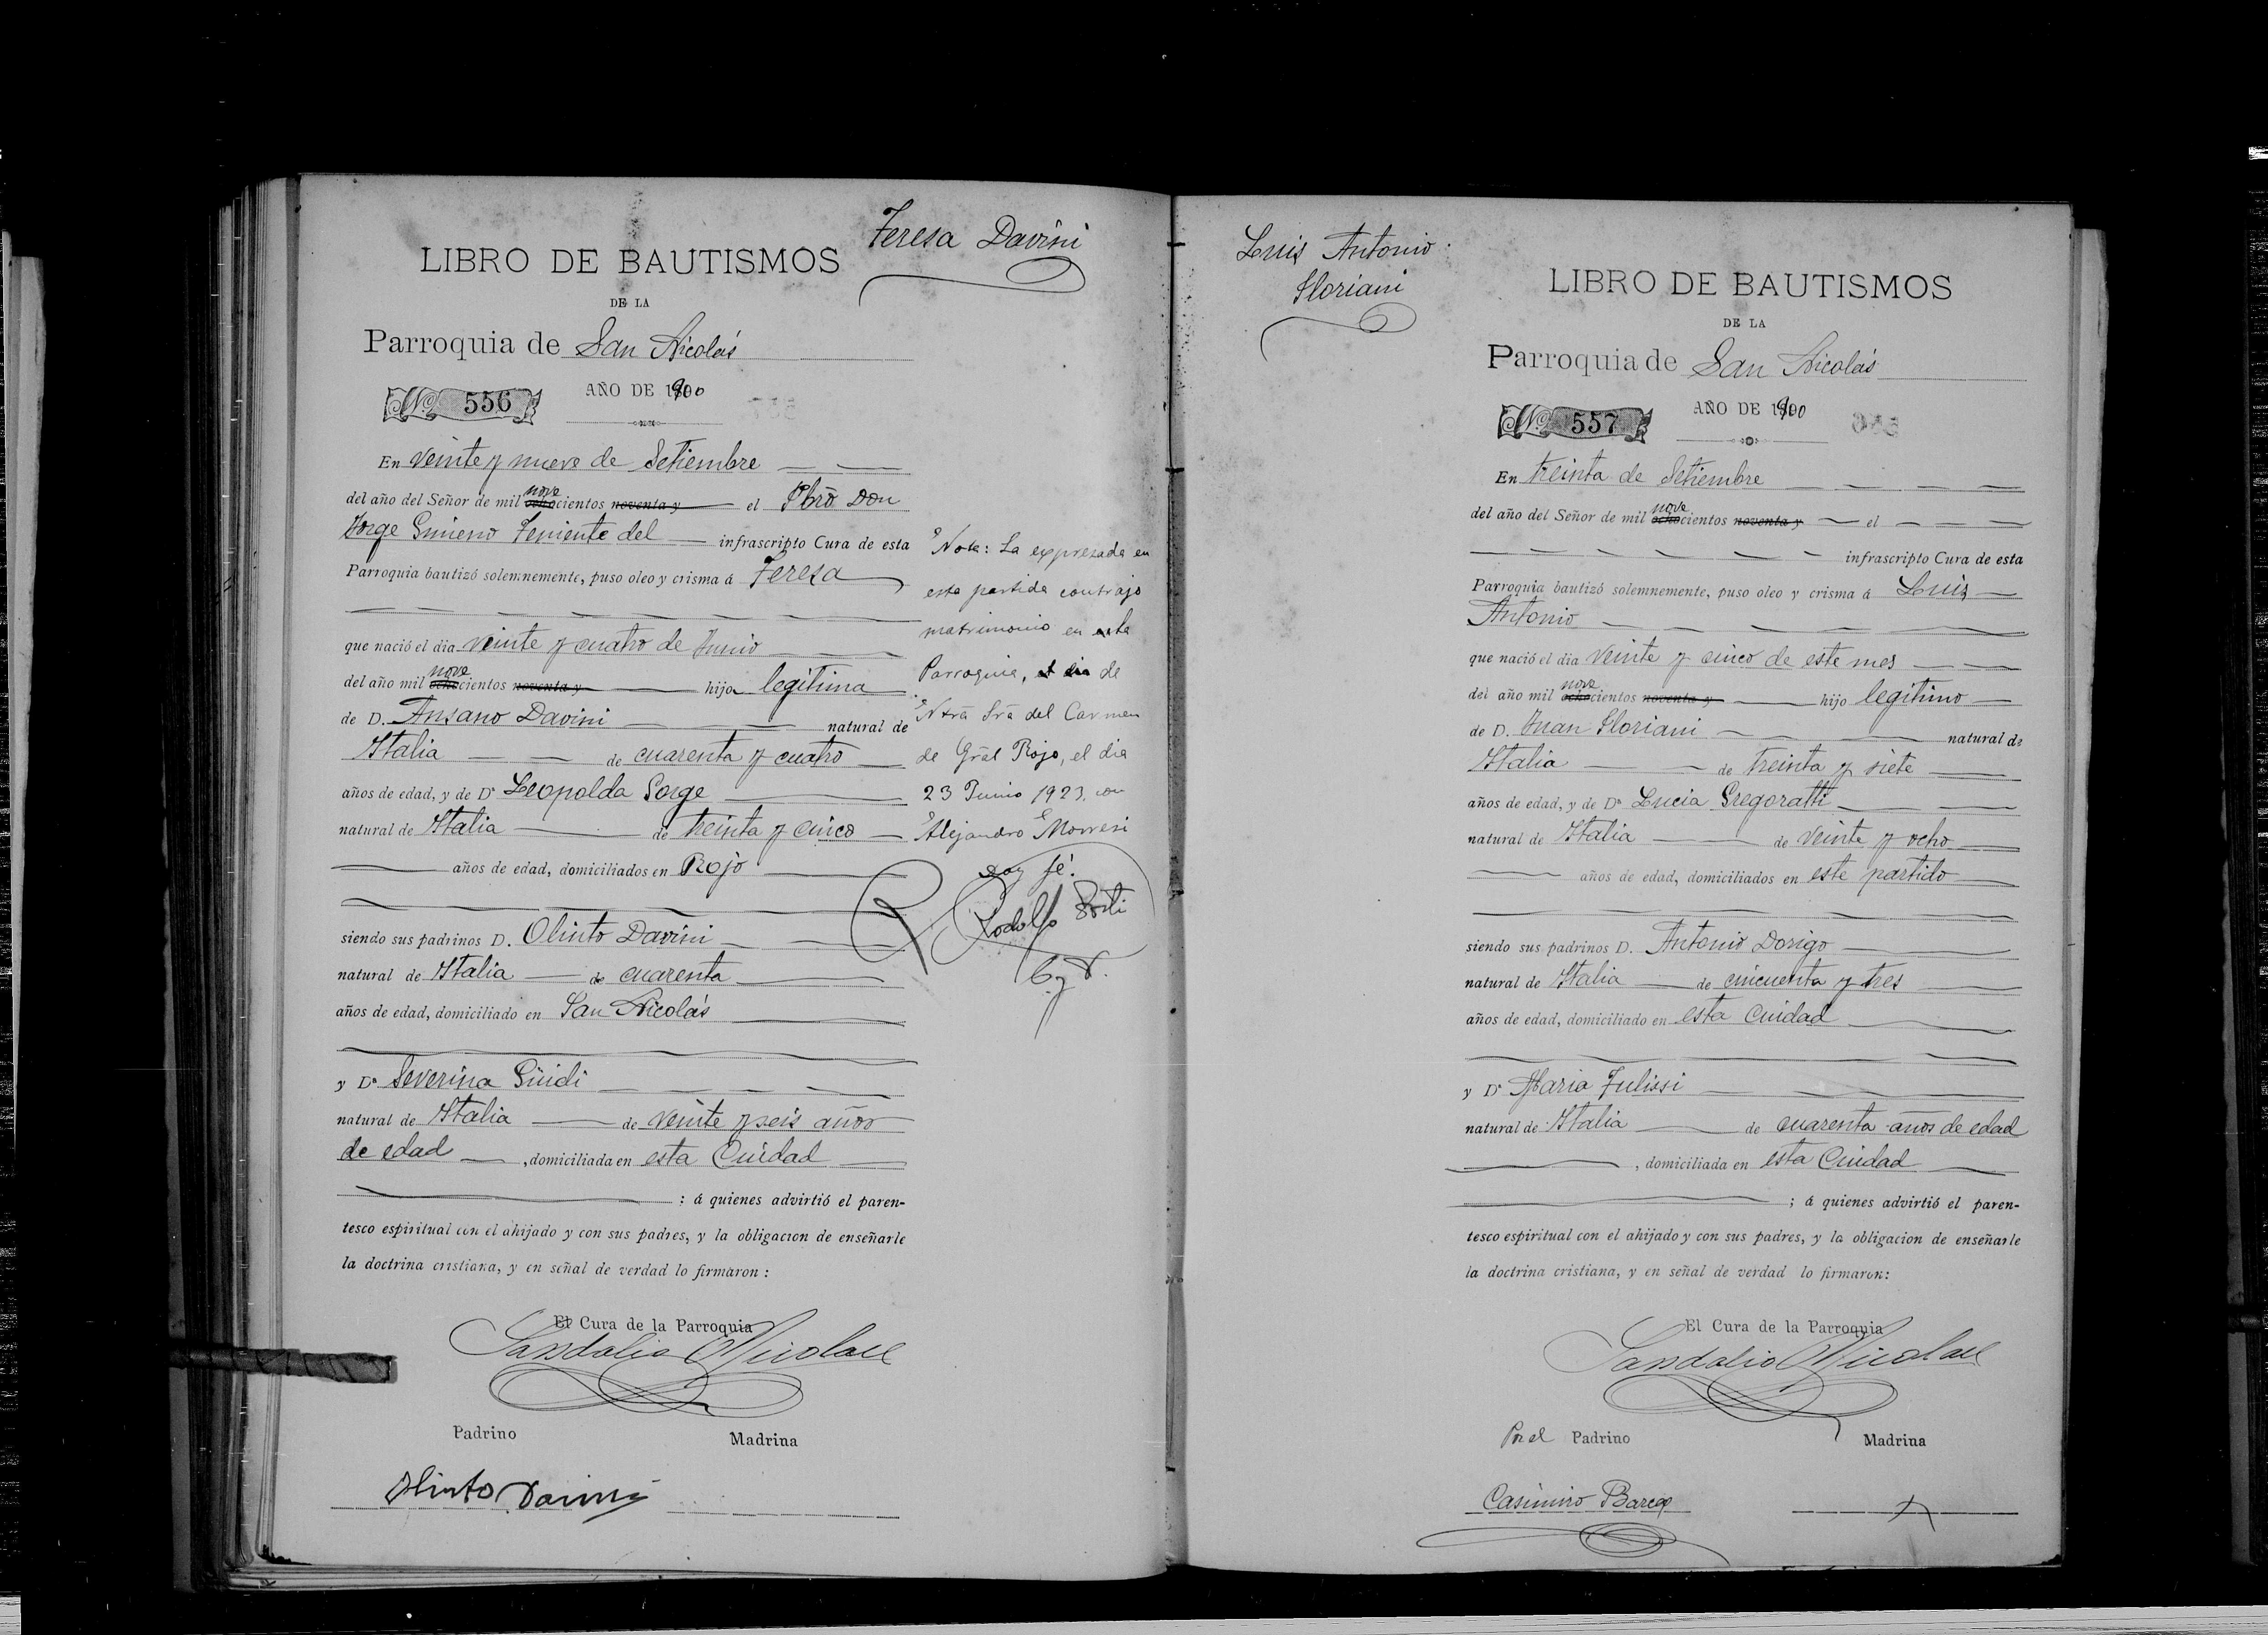 Teresa Davini
LIBRO DE BAUTISMOS
DE LA
Parroquia de San Nicolás
No. 556
AÑO DE 1900
En veinte y nueve de Setiembre
del año del Señor de mil ochocientos nove noventa y el Pbro Don
Jorge Gimeno Teniente del infrascripto Cura de esta
Parroquia bautizó solemnemente, puso oleo y crisma á Teresa
que nació el dia veinte y cuatro de Junio
del año mil ochocientos nove noventa y hija legítima
de D. Ansano Davini natural de
Italia de cuarenta y cuatro
años de edad, y de Da Leopolda Sorge
natural de Italia de treinta y cinco
años de edad, domiciliados en Rojo
siendo sus padrinos D. Olinto Davini
natural de Italia de cuarenta
años de edad, domiciliado en San Nicolás
y Da Severina Güidi
natural de Italia de veinte y seis años
de edad, domiciliada en esta Ciudad
: á quienes advirtió el paren-
tesco espiritual con el ahijado y con sus padres, y la obligacion de enseñarle
la doctrina cristiana, y en señal de verdad lo firmaron:
El Cura de la Parroquia
Sandalio
Padrino Madrina
Olinto Davini
Nota: La expresada en
esta partida contrajo
matrimonio en esta
Parroquia, de
Ntrã Srã del Carmen
de Gral Rojo, el dia
23 Junio 1923, con
Alejandro Morresi
doy fé.
Rodolfo
Luis Antonio
Floriani
LIBRO DE BAUTISMOS
DE LA
Parroquia de San Nicolás
No. 557
AÑO DE 1900
En treinta de Setiembre
del año del Señor de mil ochocientos nove noventa y el
infrascripto Cura de esta
Parroquia bautizó solemnemente, puso oleo y crisma á Luis
Antonio
que nació el dia veinte y cinco de este mes
del año mil ochocientos nove noventa y hijo legítimo
de D. Juan Floriani natural de
Italia de treinta y siete
años de edad, y de Da Lucia Gregoratti
natural de Italia de veinte y ocho
años de edad, domiciliados en este partido
siendo sus padrinos D. Antonio Dorigo
natural de Italia de cincuenta y tres
años de edad, domiciliado en esta Ciudad
y Da Maria Julissi
natural de Italia de cuarenta años de edad
, domiciliada en esta Ciudad
; á quienes advirtió el paren-
tesco espiritual con el ahijado y con sus padres, y la obligacion de enseñarle
la doctrina cristiana, y en señal de verdad lo firmaron:
El Cura de la Parroquia
Sandalio
Por el Padrino Madrina
Casimiro